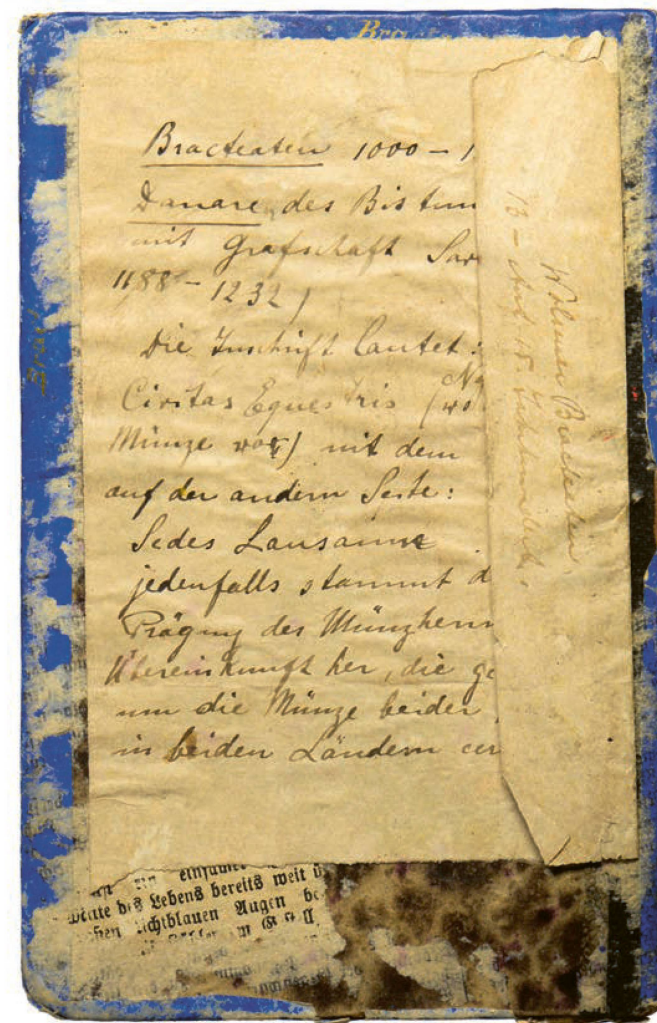 Bracteaten 1000 –
Danare, des Bistum
mit Grafschaft
1188 – 1232)
Die Inschrift lautet:
Civitas Equestris (
Münze war) mit dem
auf der andern Seite:
Sedes Lausanne
jedenfalls stammt d
Prägung des Münzherrn
Übereinkunft her, die ge
um die Münze beider
in beiden Ländern
Bracteaten
13 –
des Lebens bereits weit
lichtblauen Augen be